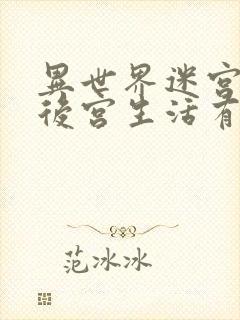 異世界迷宮
後宮生活有
范冰冰